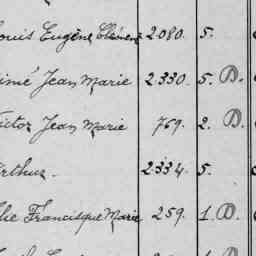 ouis Eugène Clément 2080. 5.
imé Jean Marie 2330. 5. D.
ictor Jean Marie 769. 2. D.
rthur. 2334. 5.
he Francisque Marie 259. 1. D.